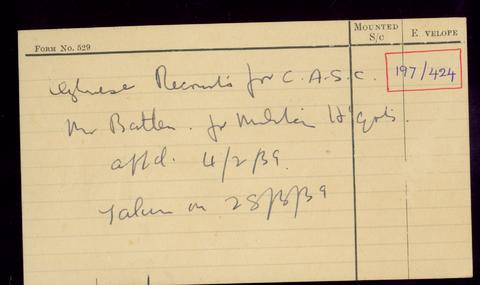 FORM NO. 529
MOUNTED S/C
E VELOPE
197/424
Recruits for C.A.S.C.
Mr Batten. for Military H'qrts.
appld. 4/2/39
Taken on 28/3/39